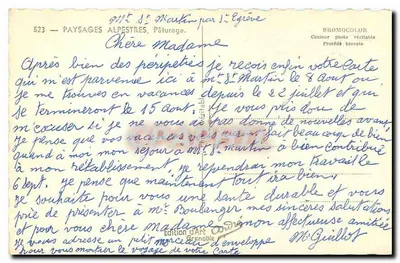 Mt St Martin par St Egrève
523 — PAYSAGES ALPESTRES, Pâturage.
BROMOCOLOR
Couleur photo véritable
Procédé breveté
Chère Madame
Après bien des péripéties je reçois enfin votre Carte
qui m'est parvenue ici à Mt St Martin le 8 Aout ou
je me trouve en vacances depuis le 22 juillet et qui
se termineront le 15 Aout. je vous prie donc de
m'excuser si je ne vous ai pas donné de nouvelles avant,
je pense que vos vacances vous fait beaucoup de bien
quand à moi mon séjour à Mt St Martin a bien contribué
à mon rétablissement, je reprendrai mon travail le
6 Sept. je pense que maintenant tout ira bien.
je souhaite pour vous une santé durable et vous
prie de présenter à Mr Boulanger mes sincères salutations
et pour vous chère madame mon affectueuse amitié
je vous adresse un petit morceau d'enveloppe
M Guillot
pour vous montrer le voyage de votre Carte
Edition CAR
Grenoble